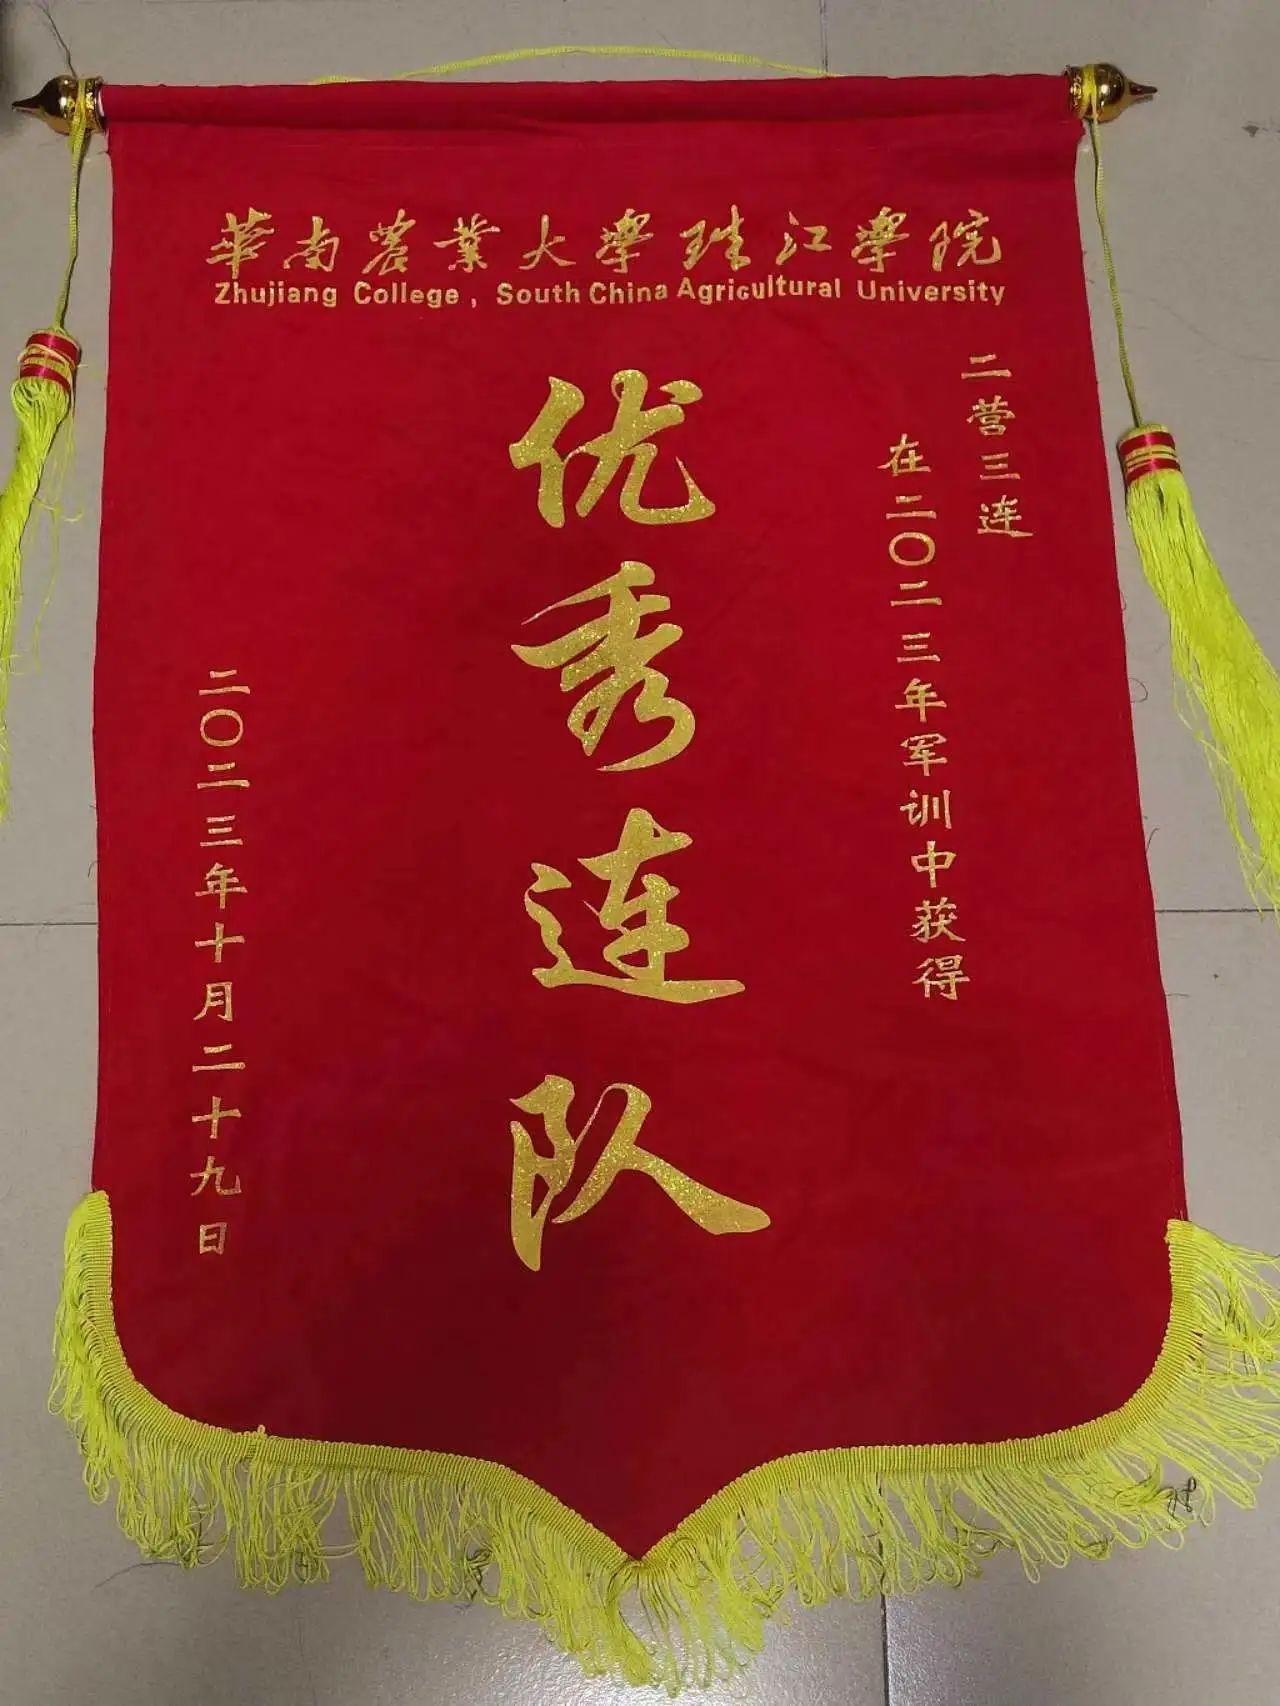 華南農業大學珠江學院
Zhujiang College, South China Agricultural University
二营三连
在二〇二三年军训中获得
优秀连队
二〇二三年十月二十九日